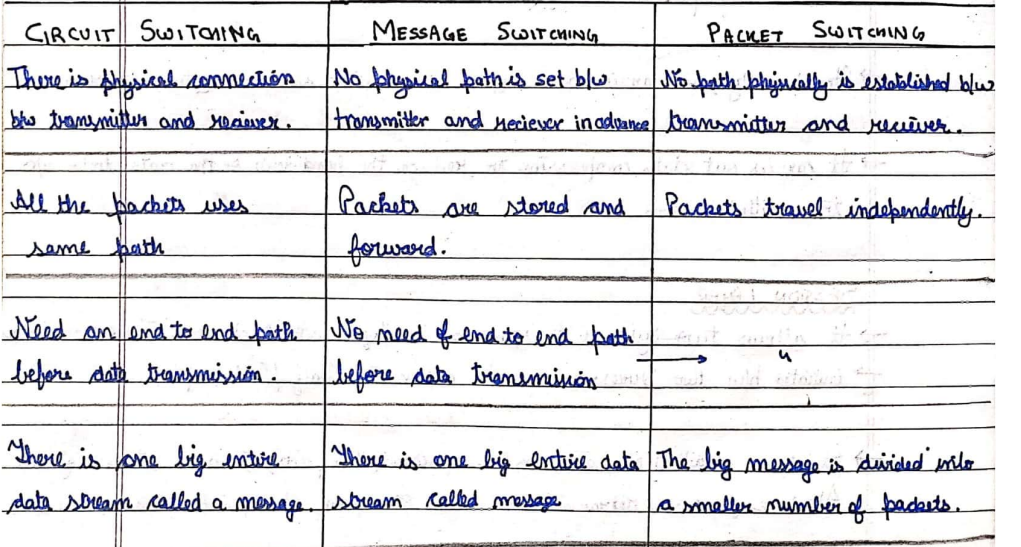 CIRCUIT SWITCHING
MESSAGE SWITCHING
PACKET SWITCHING
There is physical connection
b/w transmitter and reciever.
No physical path is set b/w
transmitter and reciever in advance
No path physically is established b/w
transmitter and reciever.
All the packets uses
same path
Packets are stored and
forward.
Packets travel independently.
Need an end to end path
before data transmission.
No need of end to end path
before data transmission
→ "
There is one big entire
data stream called a message.
There is one big entire data
stream called message
The big message is divided into
a smaller number of packets.